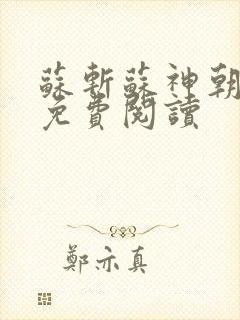 蘇斬蘇神朝
免費閱讀
鄭亦真